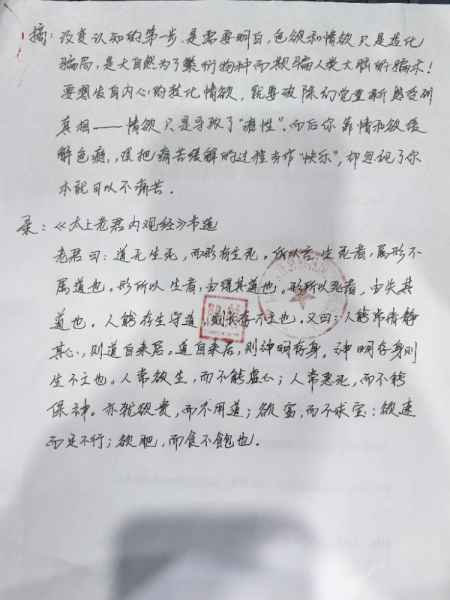 摘：改变认知的第一步，是需要明白，色欲和情欲只是进化
骗局，是大自然为了繁衍物种而欺骗人类大脑的骗术！
要想没有内心的进化情欲，就要破除幻觉重新感受到
真相——情欲只是导致了"瘾性"，而后你靠情和欲缓
解色瘾，误把痛苦缓解的过程当作"快乐"，却忽视了你
本就可以不痛苦。
录：《太上老君内观经》节选
老君曰：道无生死，而形有生死。所以言生死者，属形不
属道也。形所以生者，由得其道也。形所以死者，由失其
道也。人能存生守道，则长存不亡也。又曰：人能常清静
其心，则道自来居，道自来居，则神明存身，神明存身则
生不亡也。人常欲生，而不能虚心；人常恶死，而不能
保神。亦犹欲贵，而不用道；欲富，而不求宝；欲速
而足不行；欲肥，而食不饱也。